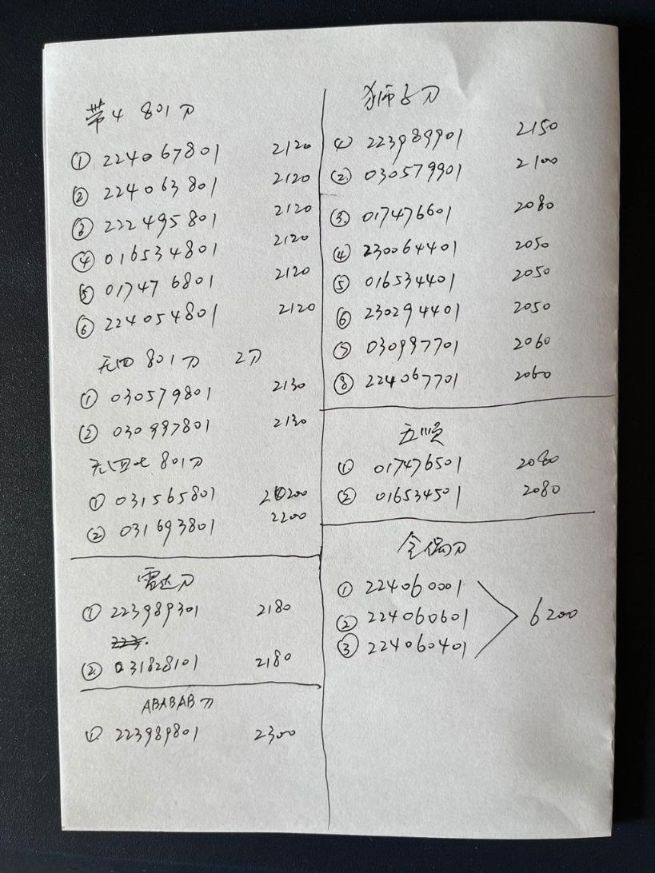 带4 801刀
① 224067801 2120
② 224063801 2120
③ 222495801 2120
④ 016534801 2120
⑤ 017476801 2120
⑥ 224054801 2120
无四 801刀 2刀
① 030579801 2130
② 030997801 2130
无四七 801刀
① 031565801 2200
② 031693801 2200
雷达刀
① 223989301 2180
223.
② 031828101 2180
ABABAB刀
① 223989801 2300
狮子刀
① 223989901 2150
② 030579901 2100
③ 017476601 2080
④ 230064401 2050
⑤ 016534401 2050
⑥ 230294401 2050
⑦ 030997701 2060
⑧ 224067701 2060
五顺
① 017476501 2080
② 016534501 2080
全程刀
① 224060001
② 224060601 6200
③ 224060401